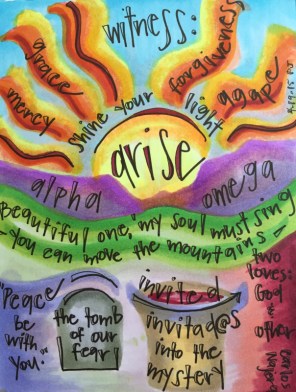 witness:
grace
mercy
forgiveness
agape
shine your light
arise
alpha
omega
Beautiful one, my soul must sing
- you can move the mountains -
two loves:
God
other
"Peace
be
with
you."
the tomb
of our
fear!
invited
invitad@s
into the
mystery